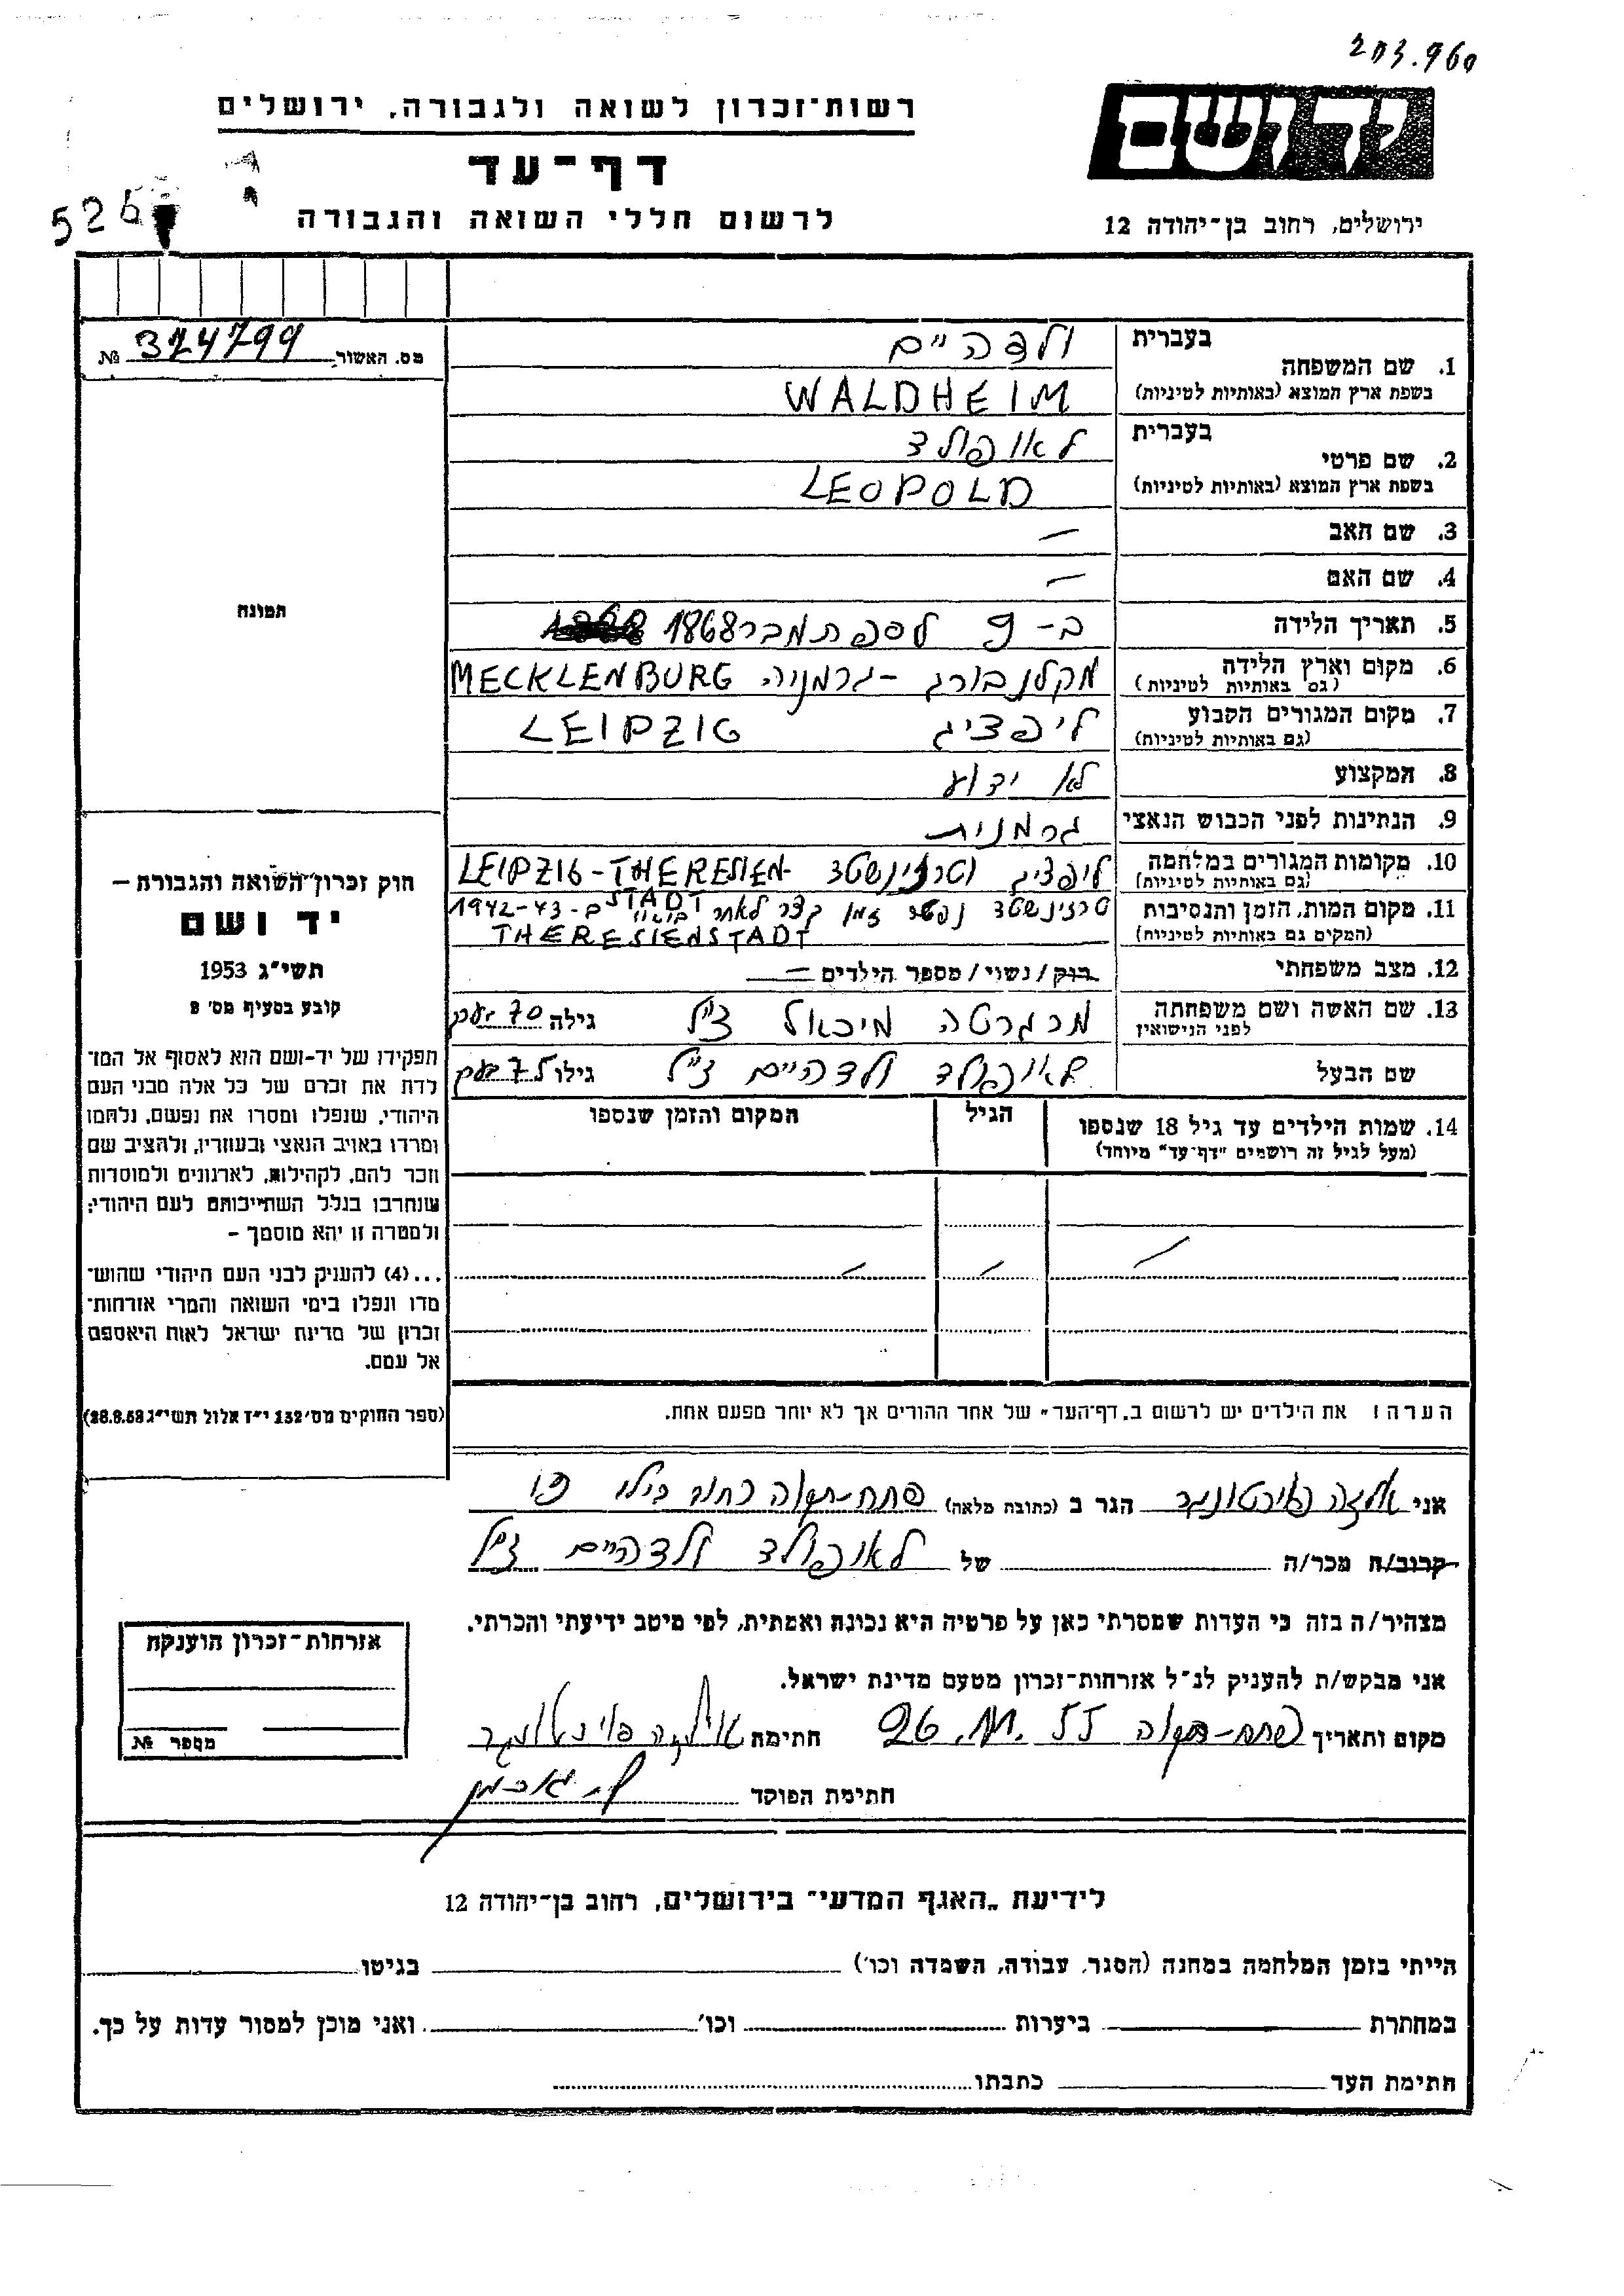 203.960
יד ושם
רשות־זכרון לשואה ולגבורה, ירושלים
דף־עד
לרשום חללי השואה והגבורה
ירושלים, רחוב בן־יהודה 12
526
מס. האשור 374799 №
1. שם המשפחה
בעברית ולדהיים
בשפת ארץ המוצא (באותיות לטיניות) WALDHEIM
2. שם פרטי
בעברית לאופולד
בשפת ארץ המוצא (באותיות לטיניות) LEOPOLD
3. שם האב —
4. שם האם —
5. תאריך הלידה ב-9 לספטמבר 1868
6. מקום וארץ הלידה (גם באותיות לטיניות) מקלנבורג - גרמניה MECKLENBURG
7. מקום המגורים הקבוע (גם באותיות לטיניות) ליפציג LEIPZIG
8. המקצוע לא ידוע
9. הנתינות לפני הכבוש הנאצי גרמנית
10. מקומות המגורים במלחמה (גם באותיות לטיניות) ליפציג וטרזינשטד LEIPZIG - THERESIEN-
STADT
11. מקום המות, הזמן והנסיבות (המקום גם באותיות לטיניות) טרזינשטד נפטר זמן קצר לאחר בואו ב-1942-43
THERESIENSTADT
12. מצב משפחתי רווק / נשוי / מספר הילדים —
13. שם האשה ושם משפחתה לפני הנישואין מרגרטה מיכאל ז"ל גילה 70
שם הבעל לאופולד ולדהיים ז"ל גילו 75
14. שמות הילדים עד גיל 18 שנספו (מעל לגיל זה רושמים "דף־עד" מיוחד)
הגיל
המקום והזמן שנספו
תמונה
חוק זכרון השואה והגבורה –
יד ושם
תשי"ג 1953
קובע בסעיף מס' 2
תפקידו של יד-ושם הוא לאסוף אל המו־
לדת את זכרם של כל אלה מבני העם
היהודי, שנפלו ומסרו את נפשם, נלחמו
ומרדו באויב הנאצי ובעוזריו, ולהציב שם
וזכר להם, לקהילות, לארגונים ולמוסדות
שנחרבו בגלל השתייכותם לעם היהודי;
ולמטרה זו יהא מוסמך –
...(4) להעניק לבני העם היהודי שהוש־
מדו ונפלו בימי השואה והמרי אזרחות־
זכרון של מדינת ישראל לאות היאספם
אל עמם.
(ספר החוקים מס' 132 י"ז אלול תשי"ג 28.8.53)
הערה: את הילדים יש לרשום ב„דף־העד" של אחד ההורים אך לא יותר מפעם אחת.
אני הגר ב (כתובת מלאה) פתח-תקוה רחוב בילו
קרוב/ה מכר/ה של לאופולד ולדהיים ז"ל
מצהיר/ה בזה כי העדות שמסרתי כאן על פרטיה היא נכונה ואמתית, לפי מיטב ידיעתי והכרתי.
אני מבקש/ת להעניק לנ"ל אזרחות־זכרון מטעם מדינת ישראל.
מקום ותאריך פתח-תקוה 26.11.55 חתימה
חתימת הפוקד
אזרחות־זכרון הוענקה
מספר №
לידיעת „האגף המדעי" בירושלים, רחוב בן־יהודה 12
הייתי בזמן המלחמה במחנה (הסגר, עבודה, השמדה וכו') בגיטו
במחתרת ביערות וכו' ואני מוכן למסור עדות על כך.
חתימת העד כתבתו